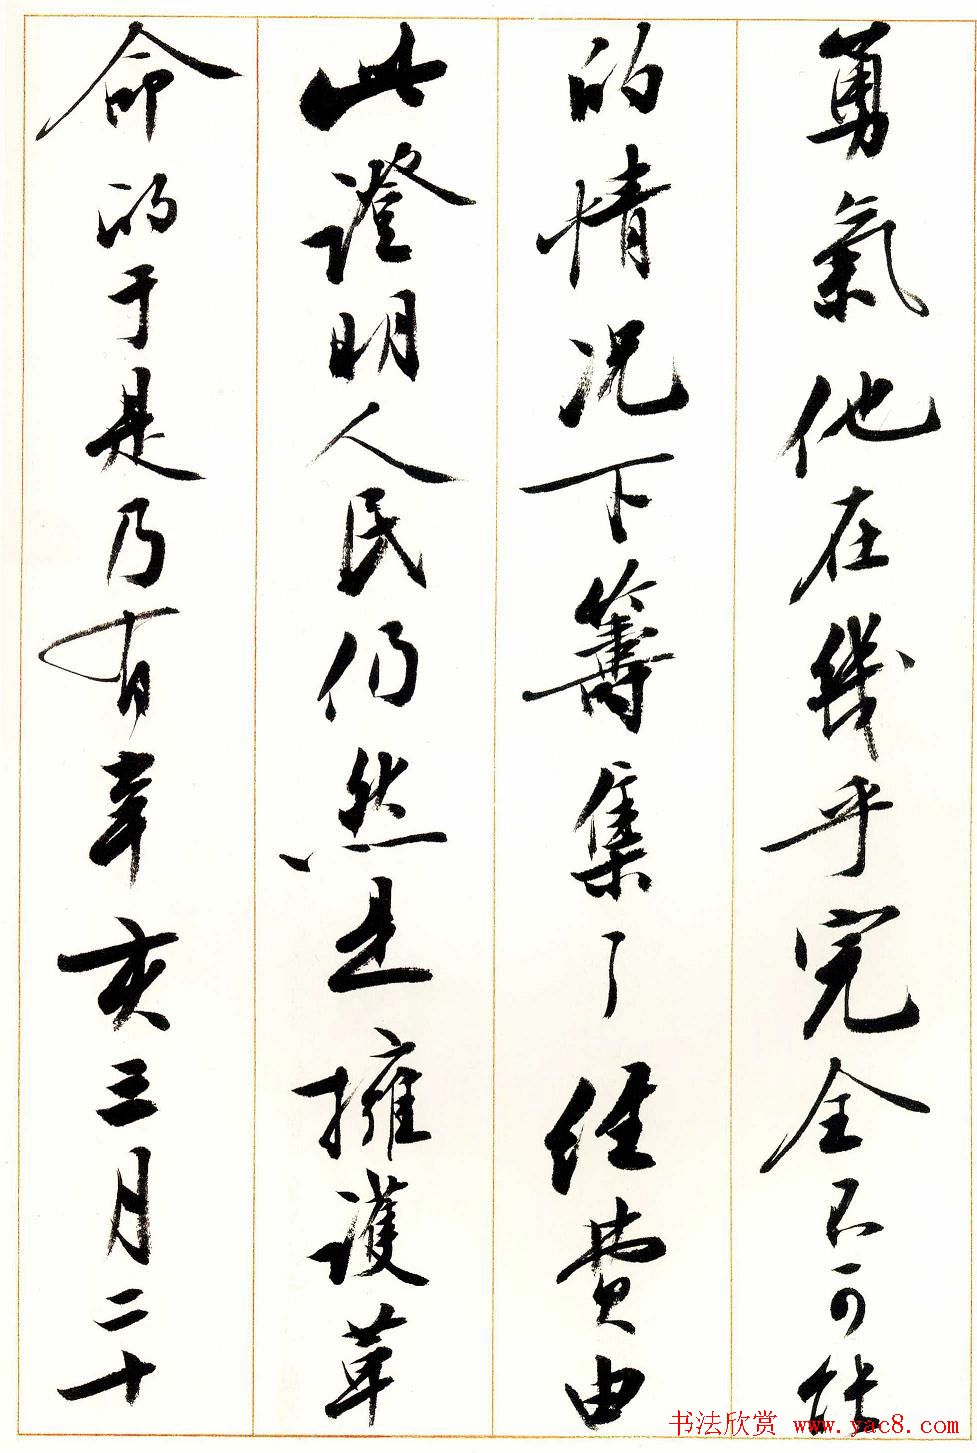 勇氣他在幾乎完全不可能
的情况下籌集了经費由
此證明人民仍然是擁護革
命的于是乃有辛亥三月二十
书法欣赏 www.yac8.com